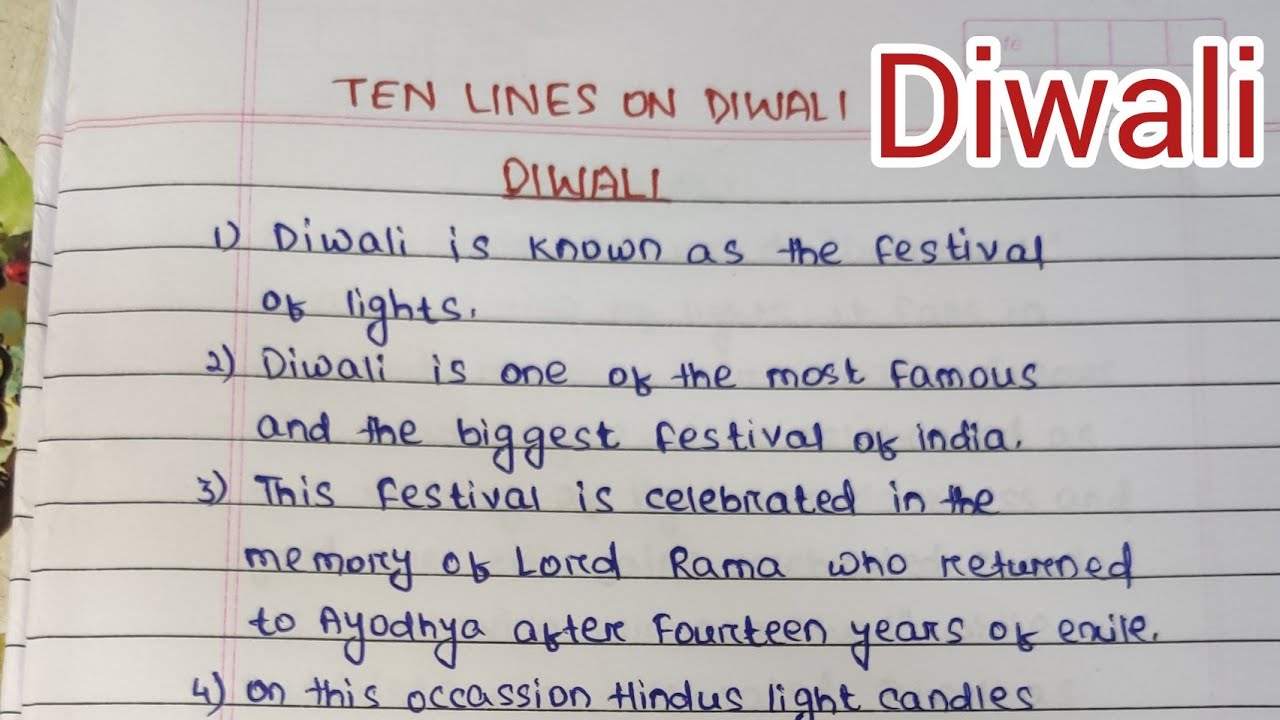 Diwali
TEN LINES ON DIWALI
DIWALI
1) Diwali is known as the festival
of lights.
2) Diwali is one of the most famous
and the biggest festival of india.
3) This festival is celebrated in the
memory of Lord Rama who returned
to Ayodhya after fourteen years of exile.
4) on this occassion Hindus light candles